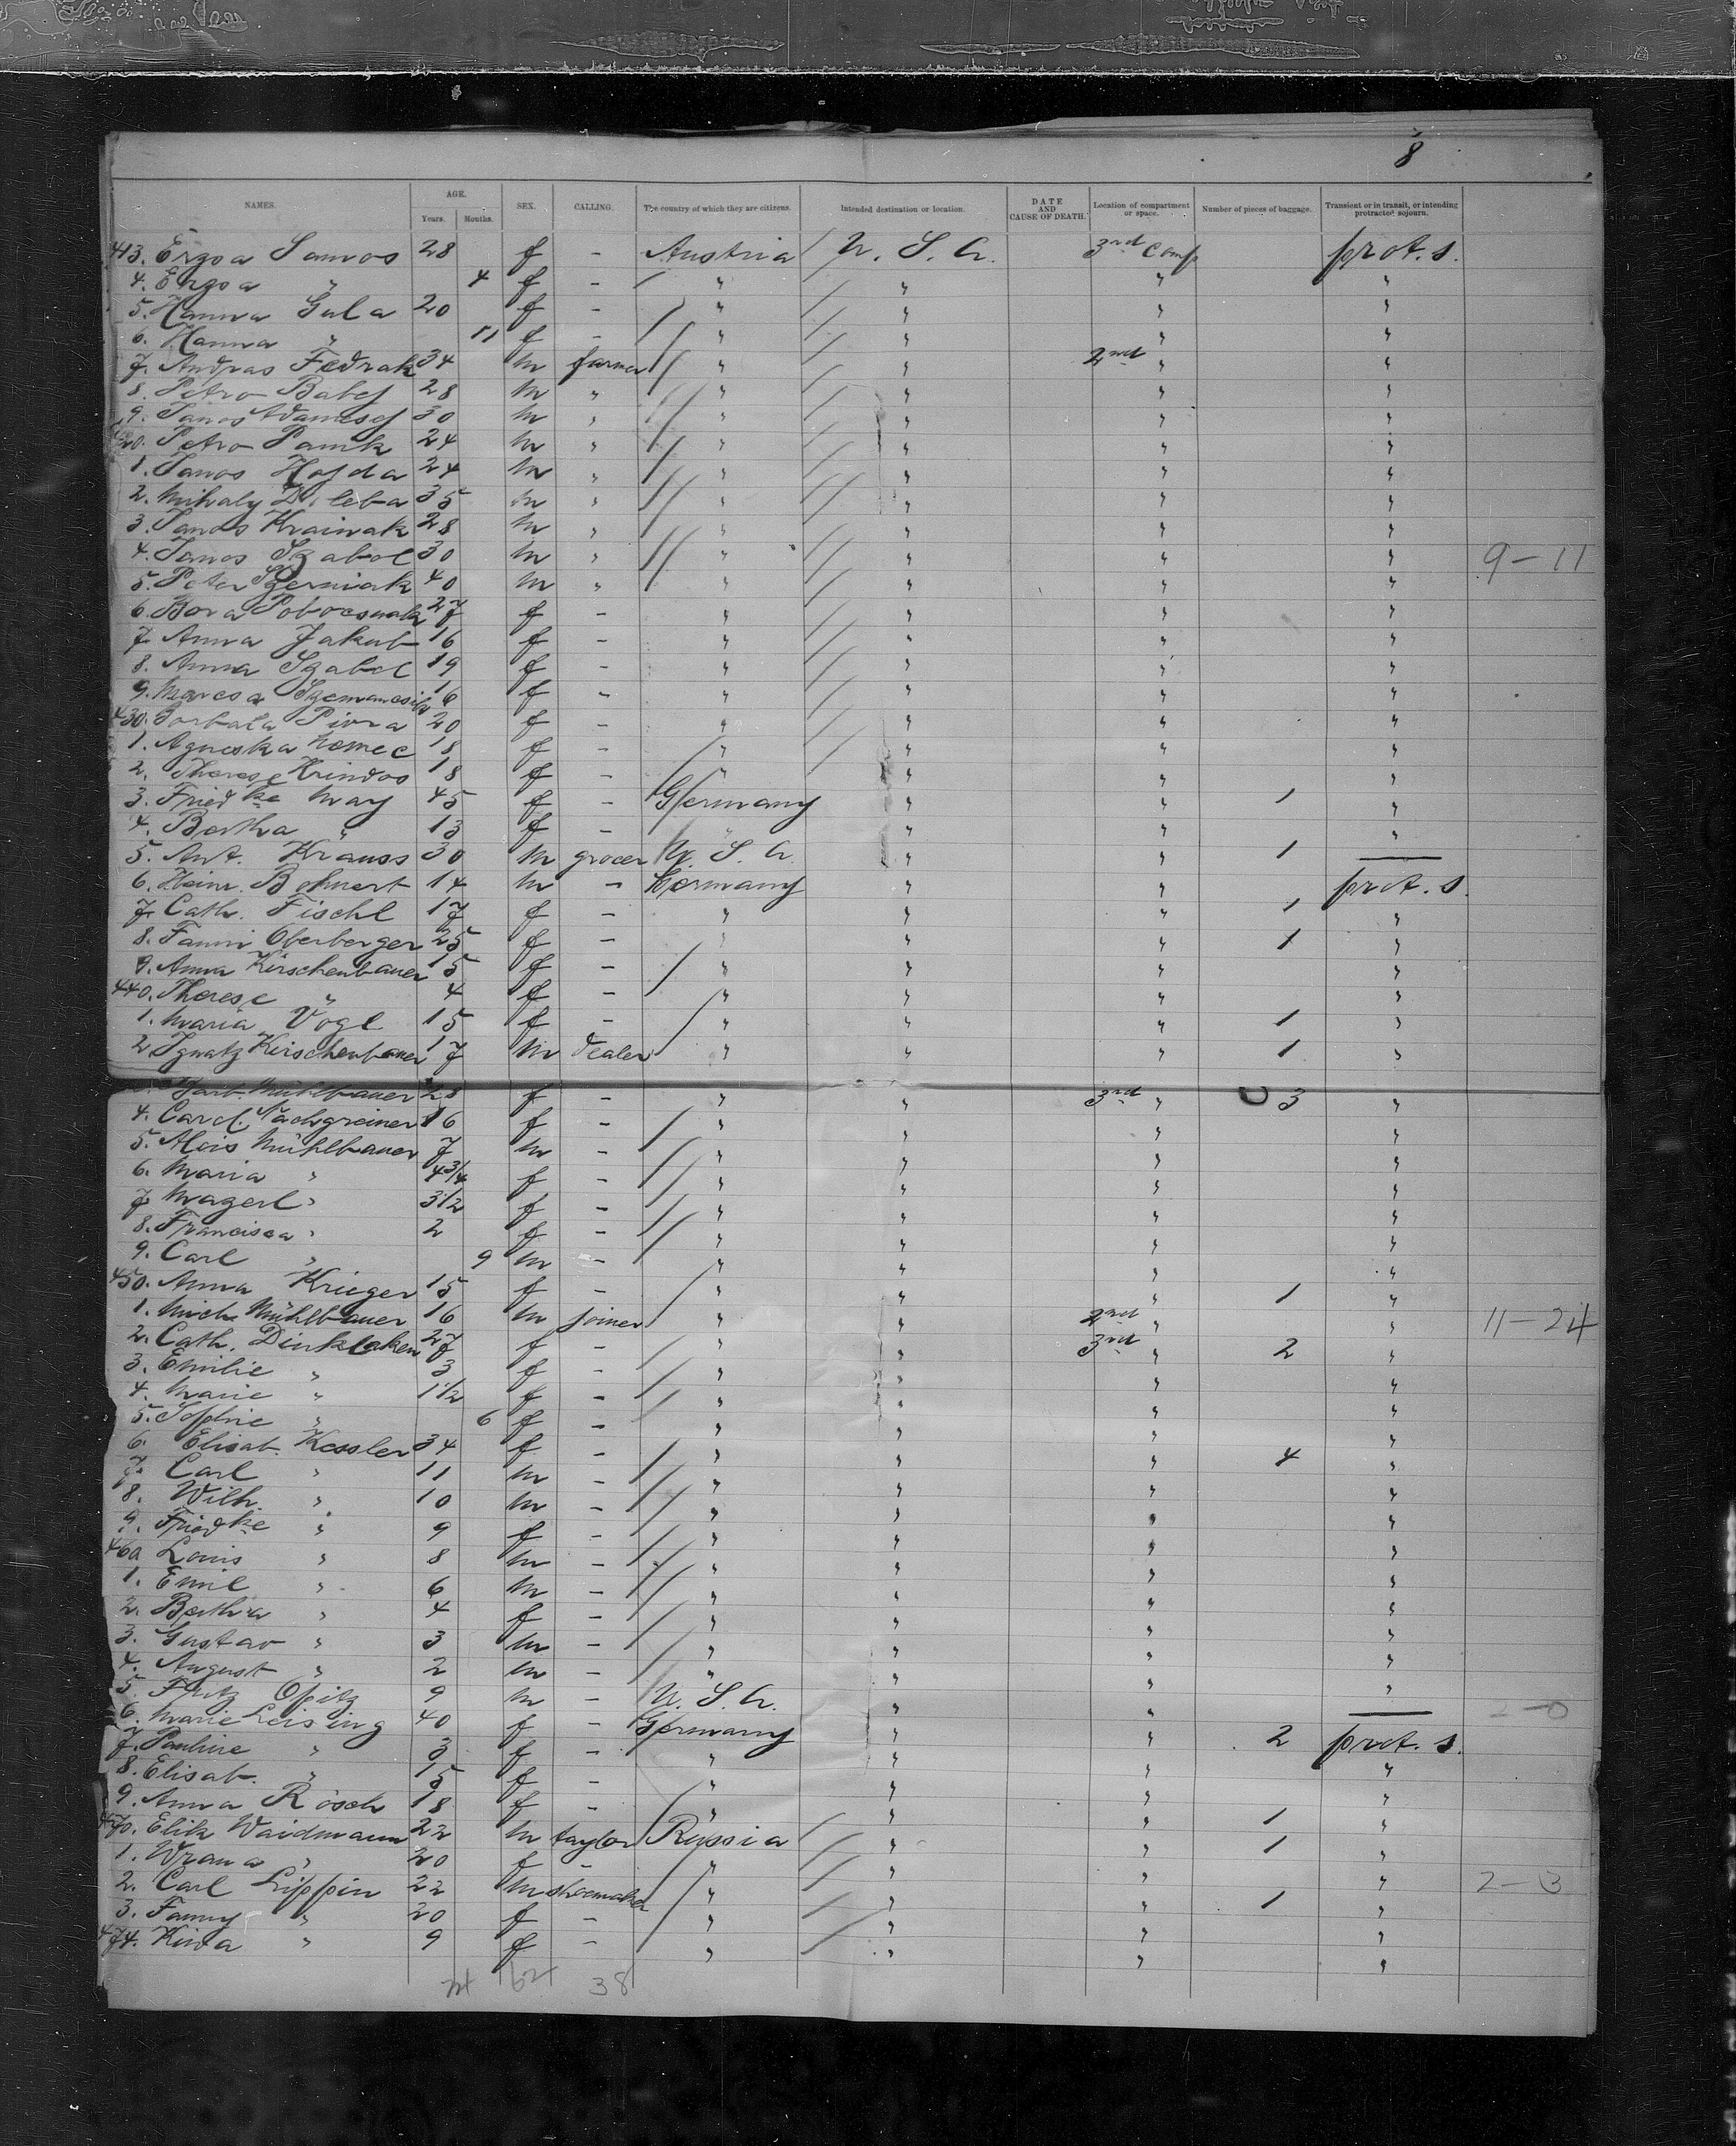 8
NAMES. AGE. Years. Months. SEX. CALLING. The country of which they are citizens. Intended destination or location. DATE AND CAUSE OF DEATH. Location of compartment or space. Number of pieces of baggage. Transient or in transit, or intending protracted sojourn.
413. Erzsa Janos 28 f - Austria U. S. A. 3rd Comp prot. s.
4. Erzsa " 4 f - " " " "
5. Hanna Gula 20 f - " " " "
6. Hanna " 11 f - " " " "
7. Andras Fedrak 34 m farmer " " 2nd " "
8. Petro Babej 28 m " " " " "
9. Janos Adamcsej 30 m " " " " "
420. Petro Pamk 24 m " " " " "
1. Janos Hojda 24 m " " " " "
2. Mihaly leba 35 m " " " " "
3. Janos Krainak 28 m " " " " "
4. Janos Szabol 30 m " " " " " 9-11
5. Peter Szerniak 40 m " " " " "
6. Bora Pobocsnak 27 f - " " " "
7. Anna Jakub 16 f - " " " "
8. Anna Szabol 19 f - " " " "
9. Maresa 16 f - " " " "
430. Borbala Pivra 20 f - " " " "
1. Agneska Nemec 18 f - " " " "
2. Therese Krindos 18 f - " " " "
3. Friedke May 45 f - Germany " " 1 "
4. Bertha " 13 f - " " " "
5. Ant. Krauss 30 m grocer U. S. A. " " 1 —
6. Heinr. Bohnert 14 m - Germany " " prot. s.
7. Cath. Fischl 17 f - " " " 1 "
8. Fanni Oberberger 25 f - " " " 1 "
9. Anna Kirschenbauer 15 f - " " " "
440. Therese " 4 f - " " " "
1. Maria Vogl 15 f - " " " 1 "
2 Ignatz Kirschenbauer 17 m dealer " " " 1 "
Barb. Mühlbauer 28 f - " " 3rd " 3 "
4. Carol. Nachgreiner 16 f - " " " "
5. Alois Mühlbauer 7 m - " " " "
6. Maria " 4 3/4 f - " " " "
7. Magerl " 3 1/2 f - " " " "
8. Francisca " 2 f - " " " "
9. Carl " 9 m - " " " "
450. Anna Krieger 15 f - " " " 1 "
1. Mich. Mühlbauer 16 m joiner " " 2nd " " 11-24
2. Cath. Dinkelaken 27 f - " " 3rd " 2 "
3. Emilie " 3 f - " " " "
4. Marie " 1 1/2 f - " " " "
5. Sophie " 6 f - " " " "
6. Elisab. Kessler 34 f - " " " 4 "
7. Carl " 11 m - " " " "
8. Wilh. " 10 m - " " " "
9. Friedke " 9 f - " " " "
460 Louis " 8 m - " " " "
1. Emil " 6 m - " " " "
2. Bertha " 4 f - " " " "
3. Gustav " 3 m - " " " "
4. August " 2 m - " " " "
5 Fritz Opitz 9 m - U. S. A. " " — 2-0
6. Marie Leising 40 f - Germany " " 2 prot. s.
7. Pauline " 3 f - " " " "
8. Elisab. " 15 f - " " " "
9. Anna Rösch 18 f - " " " 1 "
470. Elik Waidmann 22 m taylor Russia " " 1 "
1. Wrana " 20 f - " " " "
2. Carl Lippin 22 m shoemaker " " " 1 " 2-3
3. Fanny " 20 f - " " " "
474. Kiwa " 9 f - " " " "
62 38